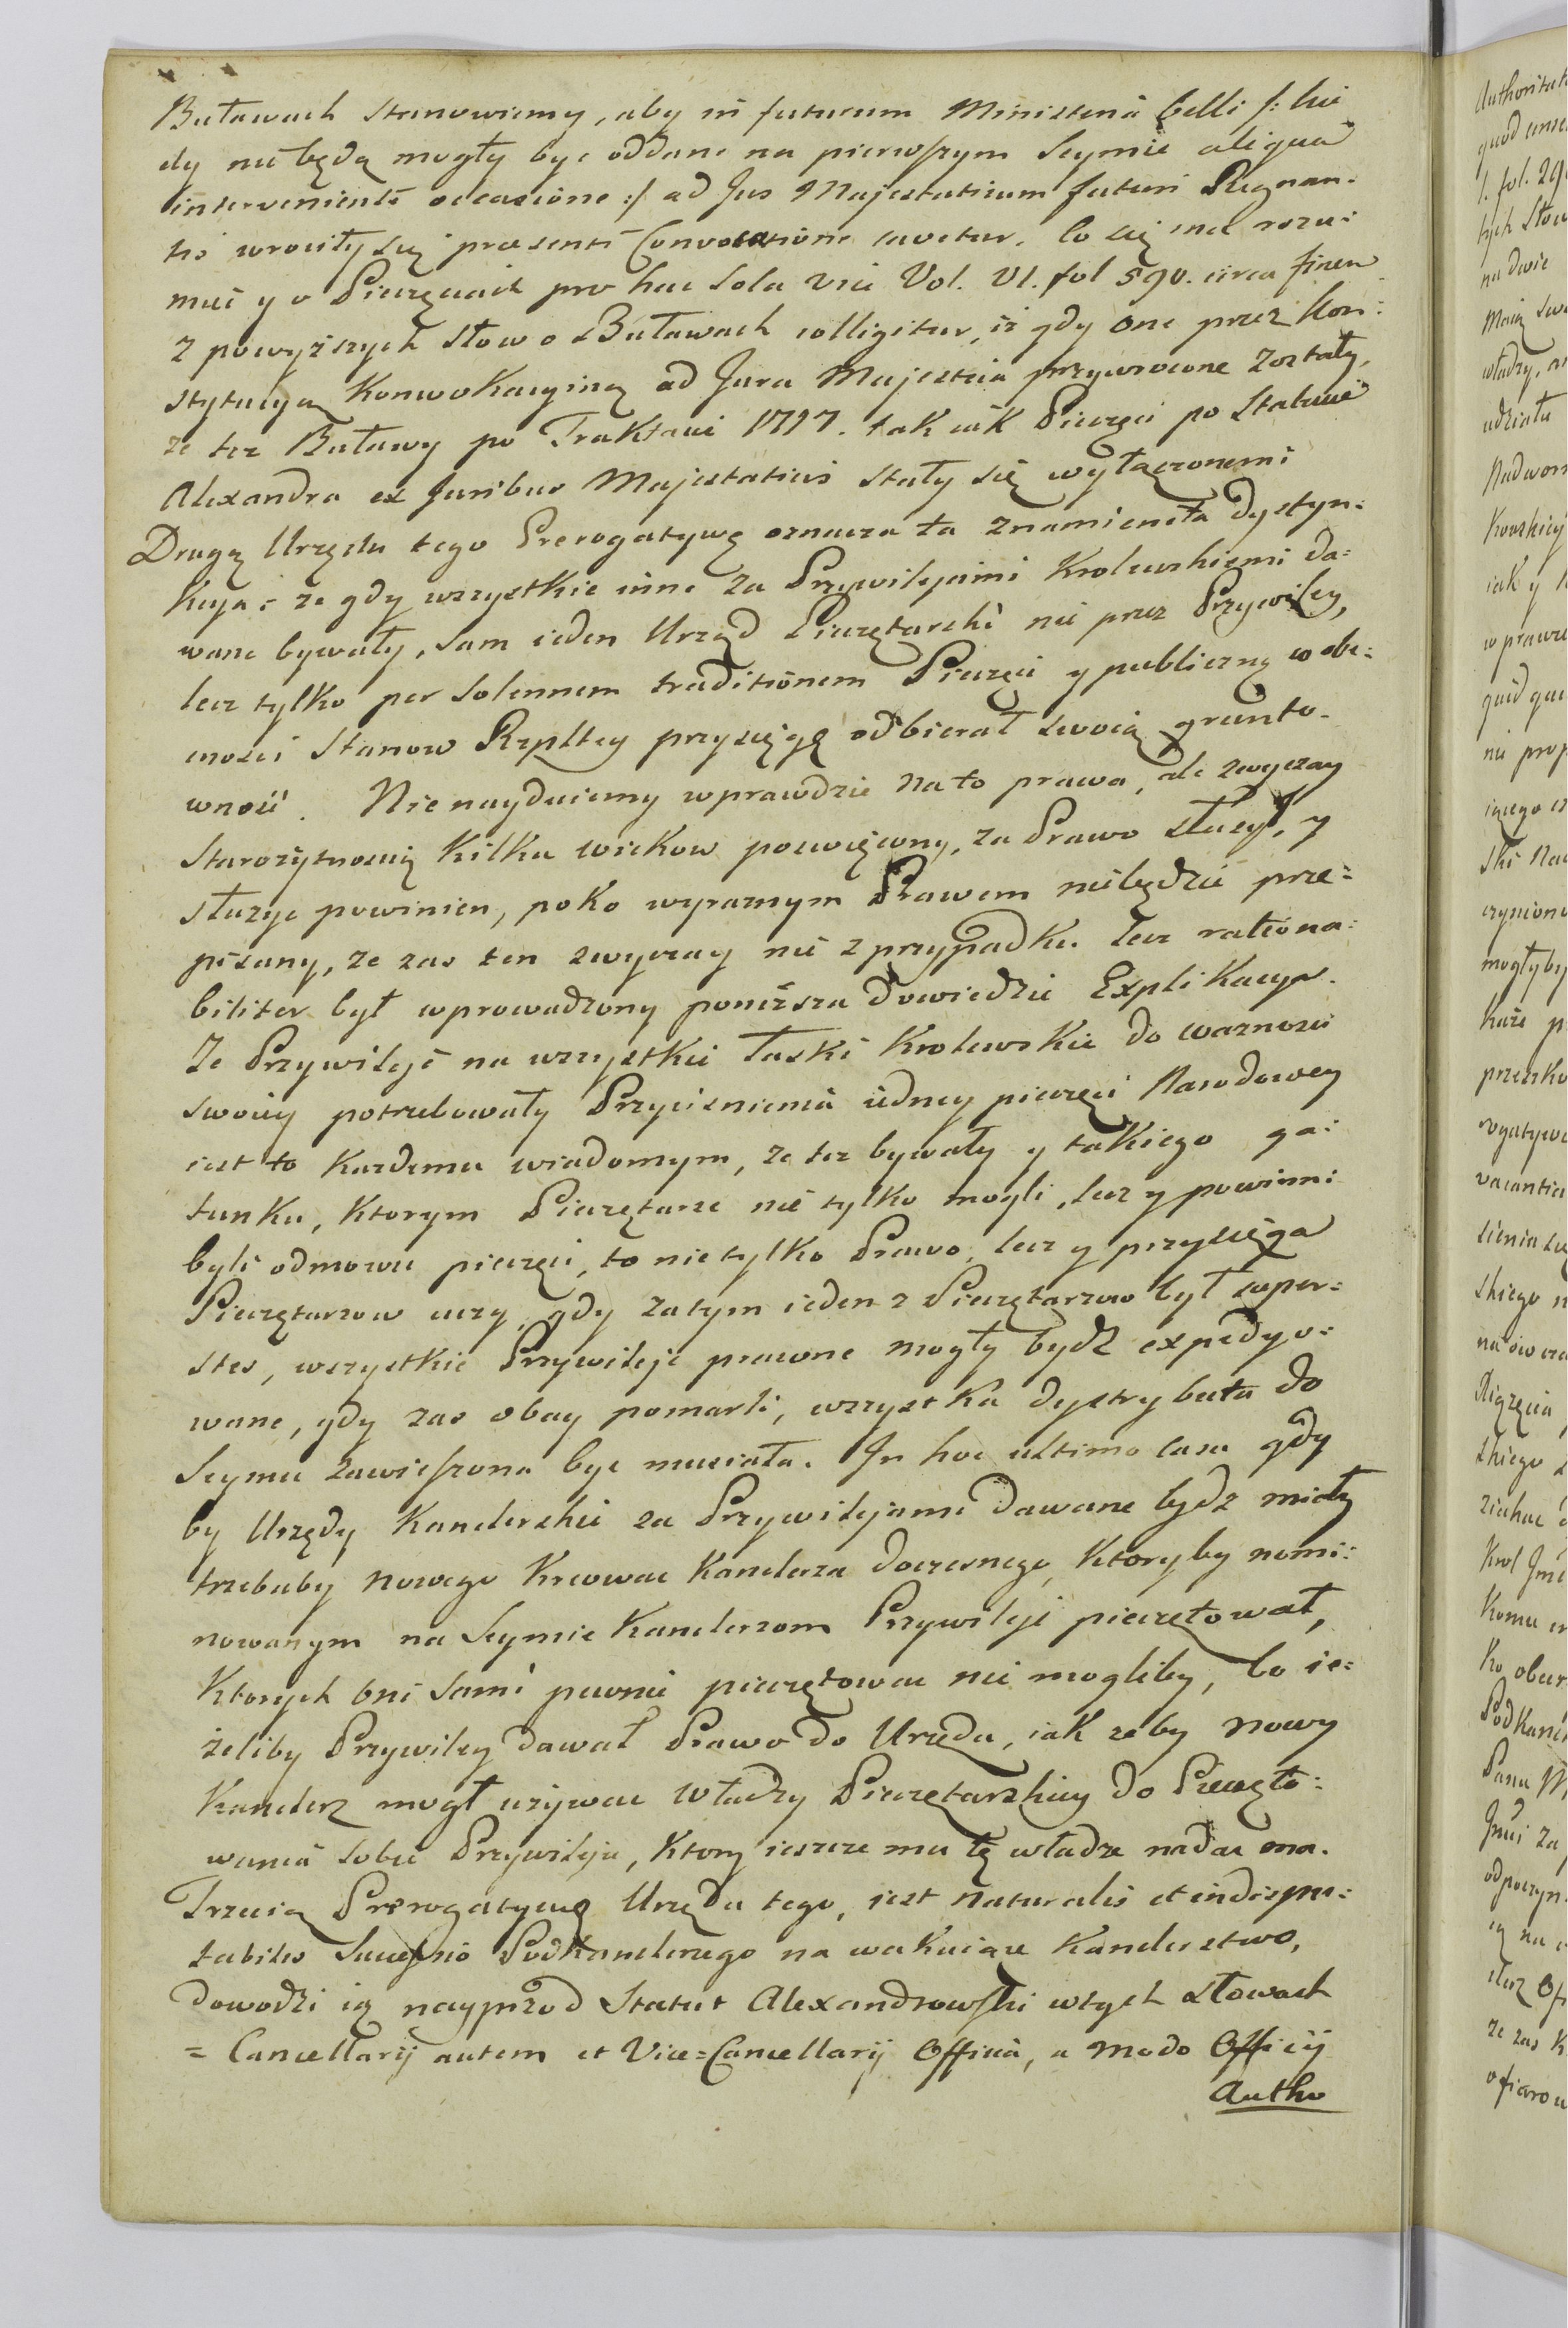 Buławach stanowiemy, aby in futurum Ministeria belli /: kie
dy nie będą mogły byc oddane na pierwszym Seymie aliqua
interveniente occasione :/ ad Jus Majestaticum futuri Regnan:
tis wrociły się praesenti Convocatione cavetur. Co się ma rozu:
miec y o Pieczęciach pro hac sola vice Vol. VI. fol 590. circa finem
z powyższych słow o Buławach colligitur, iż gdy one przez Kon:
stytucyą Konwokacyiną ad Jura Majestatis przywrocone zostały,
ze tez Buławy po Traktacie 1717. tak iak Pieczęci po Statucie
Alexandra ex Juribus Majestaticis stały się wyłączonemi
Drugą Urzędu tego Prerogatywę oznacza ta znamienita dystyn:
kcya: ze gdy wszystkie inne za Przywilejami Krolewskiemi da:
wane bywały, sam ieden Urząd Pieczętarski nie przez Przywiley,
lecz tylko per solennem traditionem Pieczęci y publiczną w obe:
cnosci Stanow Rzpltey przysięgę odbierał swoią grunto-
wność. Nie nayduiemy wprawdzie na to prawa, ale zwyczay
Starożytnością kilku wiekow poswięcony, za Prawo słuzył, y
słuzyc powinien, poko wyraznym Prawem nie będzie prze:
pisany, ze zas ten zwyczay nie z przypadku lecz rationa:
biliter był wprowadzony ponizsza dowiedzie Explikacya.
Ze Przywileje na wszystkie łaski Krolewskie do waznosci
swoiey potrzebowały Przycisnienia iedney pieczęci Narodowey
iest to kazdemu wiadomym, ze tez bywały y takiego ga:
tunku, ktorym Pieczętarze nie tylko mogli, lecz y powinni
byli odmowic pieczęci, to nie tylko Prawo, lecz y przysięga
Pieczętarzow uczy, gdy zatym ieden z Pieczętarzow był super:
stes, wszystkie Przywileje prawne mogły bydz expedyo:
wane, gdy zas obay pomarli, wszystka dystrybuta do
Seymu zawieszona byc musiała. In hoc ultimo casu gdy
by Urzędy Kanclerskie za Przywilejami dawane bydz miały
trzebaby nowego kreowac Kanclerza doczesnego, ktoryby nomi:
nowanym na Seymie Kanclerzom Przywileje pieczętował,
Ktorych oni sami pewnie pieczętowac nie mogliby, bo ie:
żeliby Przywiley dawał Prawo do Urzędu, iak zeby nowy
Kanclerz mogł uzywac władzy Pieczętarskiey do Pieczęto:
wania sobie Przywileju, ktory ieszcze mu tę władze nadac ma.
Trzecią Prerogatywą Urzędu tego, iest naturalis et indispu:
tabilis Sucessio Podkanclerzego na wakuiące Kanclerstwo,
dowodzi ią nayprzod Statut Alexandrowski w tych słowach
= Cancellarij autem et Vice=Cancellarij Officia, a modo Officij
Autho